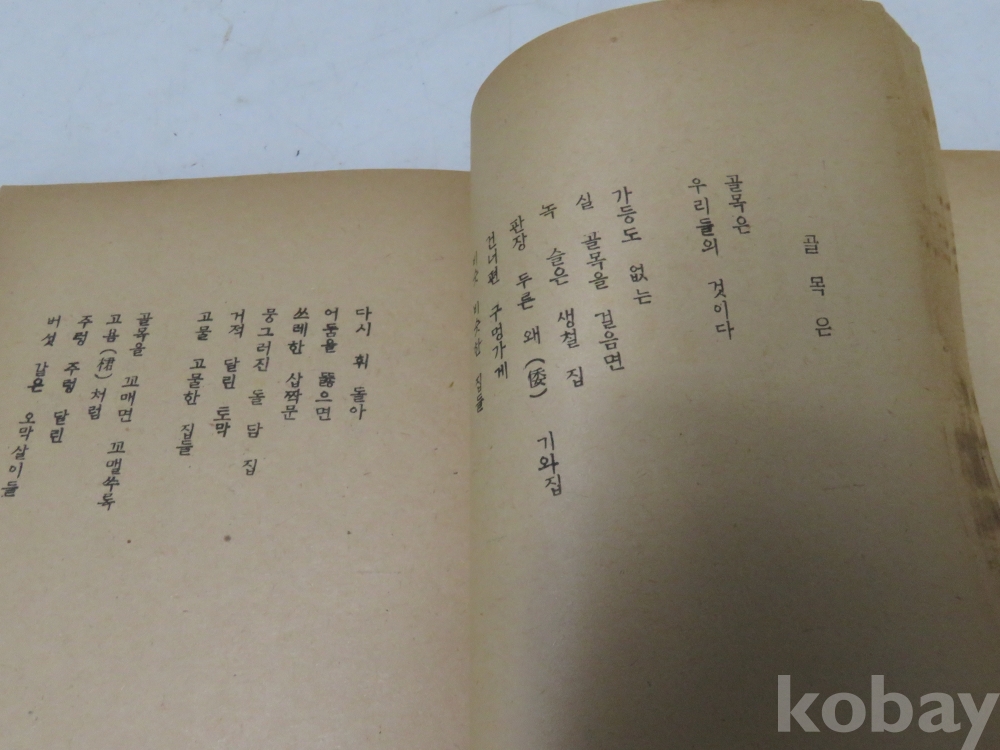 골목은
골목은
우리들의 것이다
가등도 없는
실 골목을 걸음면
녹 슬은 생철 집
판장 두른 왜(倭) 기와집
건너편 구멍가게
비슷 비슷한 집들
다시 휘 돌아
어둠을 뚫으면
쓰레한 삽짝문
뭉그러진 돌 담 집
거적 달린 토막
고물 고물한 집들
골목을 꼬매면 꼬맬쑤록
고욤(桾)처럼
주렁 주렁 달린
버섯 같은 오막살이들
kobay